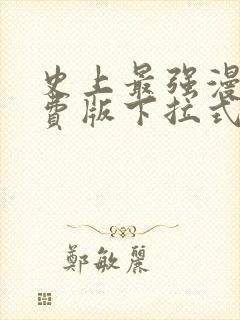 史上最强漫
費版下拉式
鄭敏麗